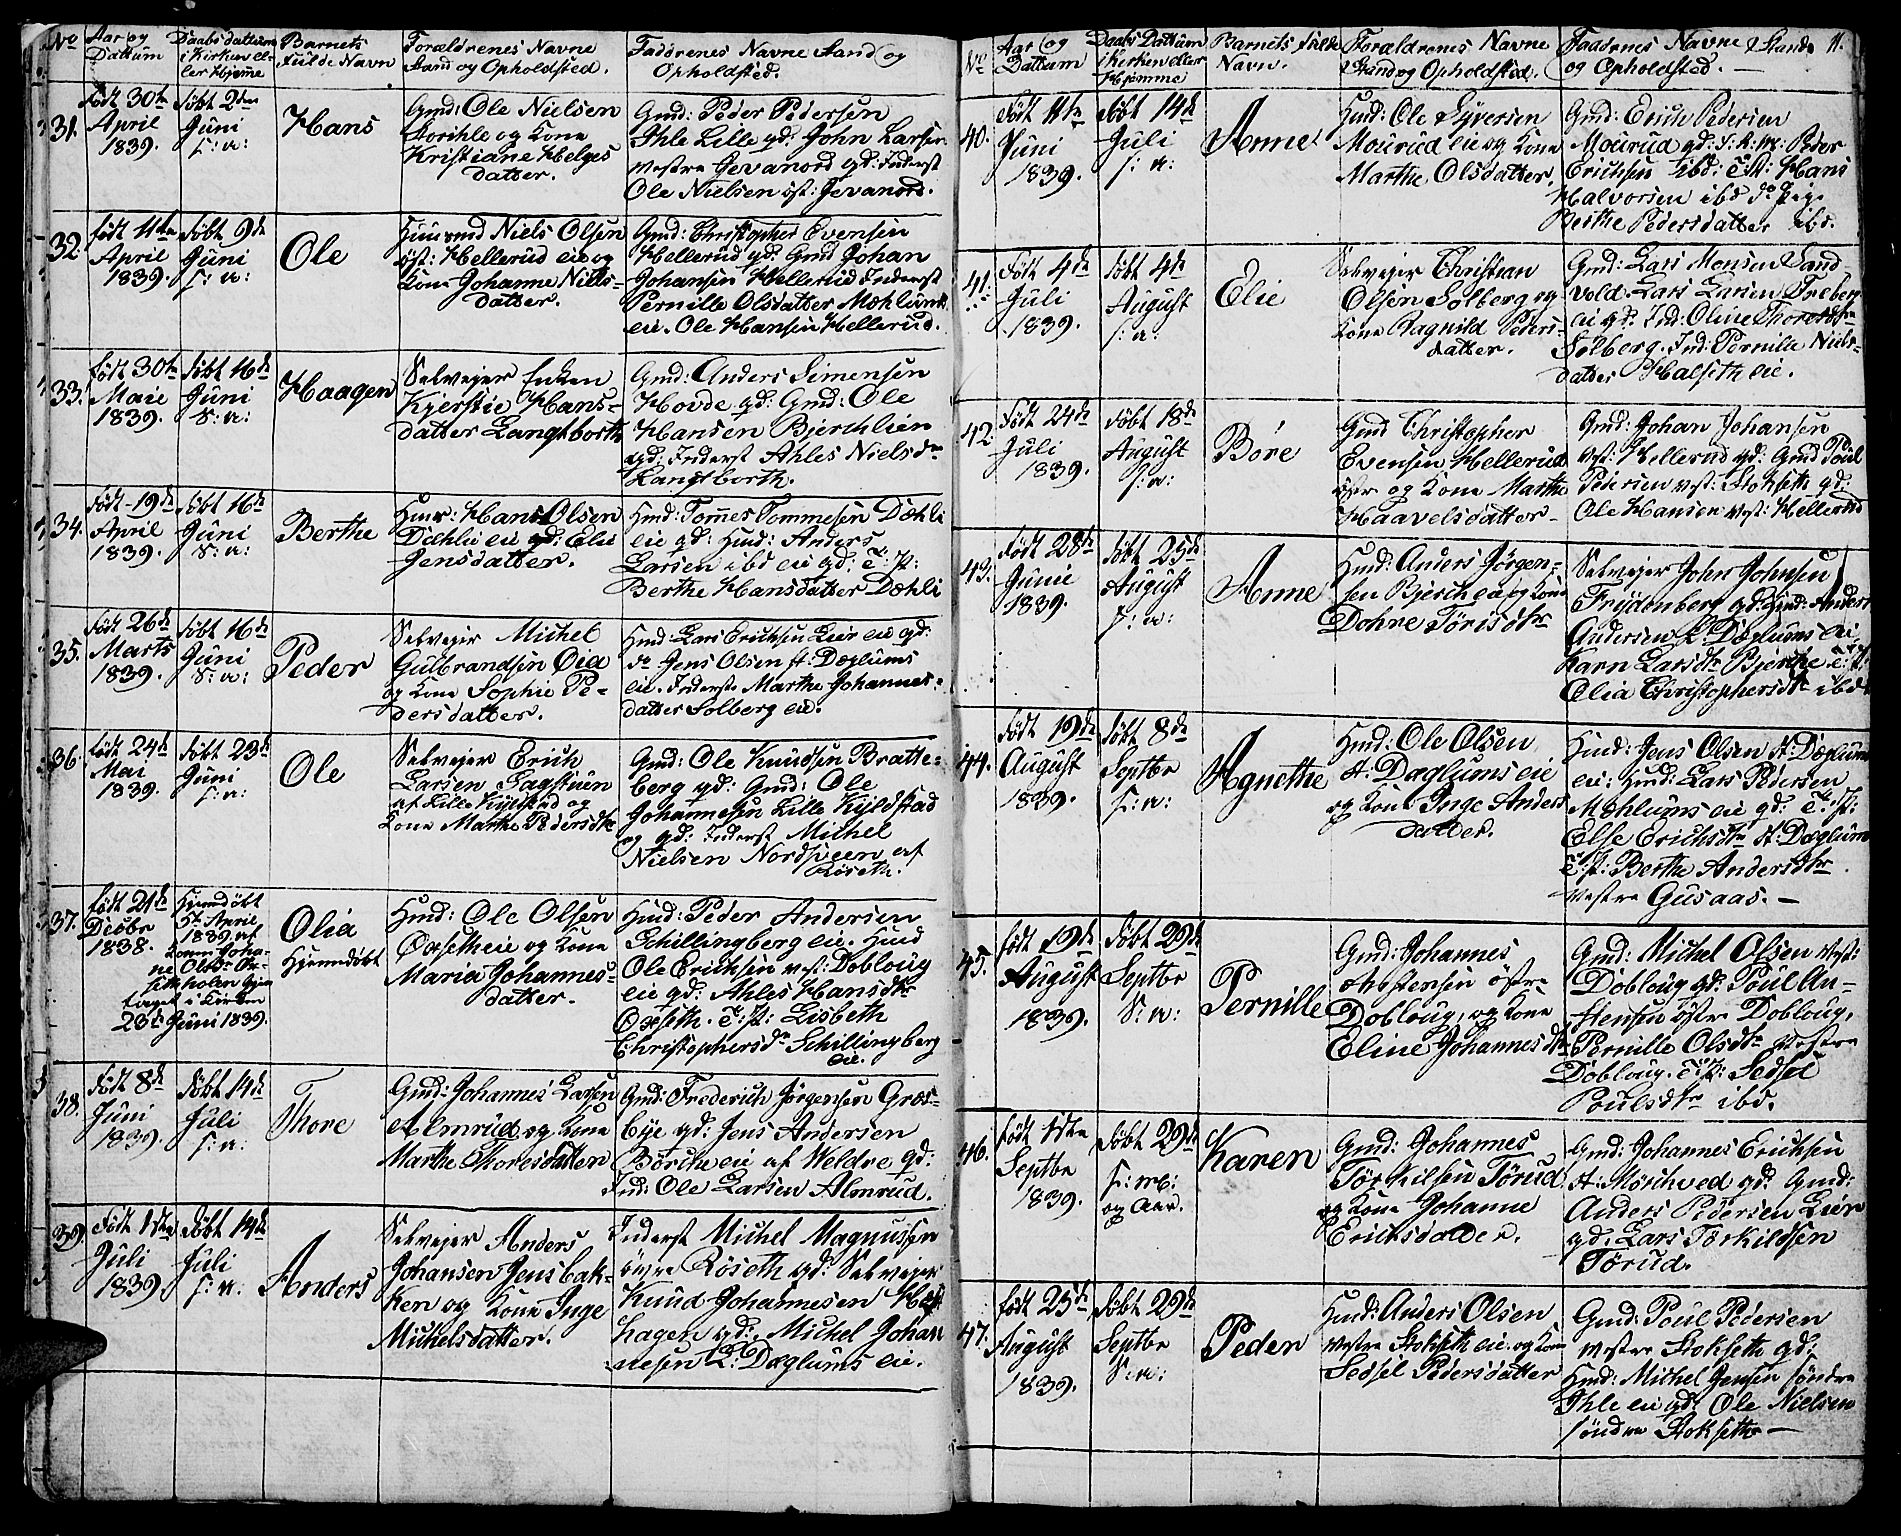 No
Aar og
Dattum
Daabs dattum
i Kirken el-
ler Hjeme
Barnets
fulde Navn
Forældrenes Navne
Stand og Opholdsted.
Faddrenes Navne Stand og
Opholdsted.
31.
Født 30te
April
1839.
Døbt 2den
Juni
s: a:
Hans
Gmd: Ole Nielsen
Storihle og Kone
Kristiane Helges
datter.
Gmd: Peder Pedersen
Ihle Lille gd: John Larsen
Vestre Gevanord gd: Inderst
Ole Nielsen øst: Jevanord.
32.
født 11te
April
1839.
Døbt 9de
Juni
s: a:
Ole
Huusmd Niels Olsen
øst: Hellerud eie og
Kone Johanne Niels-
datter.
Gmd: Christopher Evensen
Hellerud gd: Gmd Johan
Johansen Hellerud Inderst
Pernille Olsdatter Mæhlum
eie. Ole Hansen Hellerud.
33.
født 30te
Maie
1839.
Døbt 16de
Juni
S: a:
Haagen
Selvejer Enken
Kjerstie Hans-
datter Langtborth
Gmd: Anders Simensen
Hovde gd: Gmd: Ole
Hansen Bjerchlien
gd: Inderst Ahles Nielsdr
Langtborth.
34.
Født 19de
April
1839.
Døbt 16de
Juni
S: a:
Berthe
Huus: Hans Olsen
Dæhlie eie gd: Elie
Jensdatter.
Hmd: Tommes Tommesen Dæhli
eie gd: Hmd: Anders
Larsen ibd eie gd: T: P:
Berthe Hansdatter Dæhli
35.
født 26de
Marts
1839.
Døbt 16de
Juni
S: a:
Peder
Selvejer Michel
Gulbrandsen Øia
og Kone Sophie Pe-
dersdatter.
Hmd: Lars Erichsen Lier eie gd:
do Jens Olsen st: Dæglums
eie. Inderst Marthe Johannes-
datter Solberg eie.
36.
født 24de
Mai
1839.
Døbt 23de
Juni
s: a:
Ole
Selvejer Erich
Larsen Sagstuen
af Lille Kyldstad og
Kone Marthe Pedersdtr
Gmd: Ole Knudsen Bratte-
berg gd: Gmd: Ole
Johannesen Lille Kyldstad
og gd: Inderst Michel
Nielsen Nordsveen af
Røseth.
37.
født 21de
Decbr
1838.
Hjemdøbt
April
1839 af
Konen Joha-
ne Olsdr
holen
taget i Kirken
23de Juni 1839.
Olia
Hjemmedøbt
Hmd: Ole Olsen
Oxsetheie og Kone
Maria Johannes-
datter.
Hmd: Peder Andersen
Schillingberg eie. Hmd
Ole Erichsen vest: Dobloug
eie gd: Ahles Hansdtr
Oxseth. T: P: Lisbeth
Christophersdr Schillingberg
eie.
38.
født 8de
Juni
1839.
Døbt 14de
Juli
s: a:
Thore
Gmd: Johannes Larsen
Almrud og Kone
Marthe Thoresdatter
Gmd: Frederich Jørgensen Græs-
bye gd: Jens Andersen
Børche eie af Veldre gd:
Ind: Ole Larsen Almrud.
39.
Født 1ste
Juli
1839.
Døbt 14de
Juli
s: a:
Anders
Selvejer Anders
Johansen Jensbak-
ken og Kone Inge
Michelsdatter.
Inderst Michel Magnussen
øvre Røseth gd: Selvejer
Knud Johannesen
hagen gd: Michel Johan
nesen L: Dæglums eie.
No
Aar og
Dattum
Daabs Dattum
i Kirken eller
Hjemme
Barnets fulde
Navn.
Forældrenes Navne
Stand og Opholdsted.
Faddrenes Navne Stands
og Opholdsted. —
11.
40.
Født 11te
Juni
1839.
Døbt 14de
Juli
s: a:
Anne
Hmd: Ole Syversen
Mourud eie og Kone
Marthe Olsdatter.
Gmd: Erich Pedersen
Mourud gd: Peder
Erichsen ibd: Hans
Halvorsen ibd do Pige
Berthe Pedersdatter ibd.
41.
Født 4de
Juli
1839.
Døbt 4de
August
s: a:
Elie
Selvejer Christian
Olsen Solberg og
Kone Ragnild Peders-
datter.
Gmd: Lars Monsen Sand-
vold. Lars Larsen
eie gd: Ind: Oline Thoresdtr
Solberg. Ind: Pernille Niels-
datter Halseth eie.
42.
Født 24de
Juli
1839.
døbt 18de
August
s: a:
Bore
Gmd Christopher
Evensen Hellerud
østr og Kone Marthe
Haavelsdatter-
Gmd: Johan Johansen
vest: Hellerud gd: Gmd Poul
Pedersen vest: Stokseth gd:
Ole Hansen vest: Hellerud
43.
Født 28de
Junie
1839.
Døbt 25de
August
s: a:
Anne
Hmd: Anders Jørgen-
sen Bjerche eie og Kone
Dohne Torisdtr
Selvejer John Johnsen
Frydenberg gd: Hmd: Anders
Andersen L: Dæglums eie
Karn Larsdtr Bjerche T: P:
Olia Christophersdtr ibd
44.
født 19de
August
1839.
Døbt 8de
Septbr
s: a:
Agnethe
Hmd: Ole Olsen
st: Dæglums eie
og Kone Inge Anders
datter.
Hmd: Jens Olsen st: Dæglums
eie: Hmd: Lars Pedersen
Mæhlums eie gd: T: P:
Else Erichsdtr st: Dæglum
T: P: Berthe Andersdtr
vestre Gusaas. —
45.
født 19de
August
1839.
Døbt 29de
Septbr
S: a:
Pernille
Gmd: Johannes
Mostensen østre
Dobloug, og Kone
Eline Johannesdtr
Gmd: Michel Olsen vest:
Dobloug gd: Poul An-
stensen østr Dobloug,
Pernille Olsdtr vestre
Dobloug. T: P: Sedsel
Poulsdtr ibd.
46.
født 1ste
Septbr
1839.
Døbt 29de
s: m:
og Aar.
Karen
Gmd: Johannes
Torkilsen Torud
og Kone Johanne
Ericksdatter.
Gmd: Johannes Erichsen
st: Mørchved gd: Gmd:
Anders Pedersen Lier
gd: Lars Torkildsen
Torud.
47.
født 25de
August
1839.
Døbt 29de
Septbr
S: a:
Peder
Hmd: Anders Olsen
vestre Stokseth eie og Kone
Sedsel Pedersdatter
Gmd: Poul Pedersen
vestre Stokseth gd:
Hmd: Michel Jensen søndre
Ihle eie gd: Ole Nielsen
søndre Stokseth —